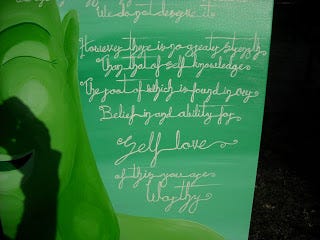 We do not deserve it
However there is no greater strength
Than that of self knowledge
The root of which is found in our
Belief in and ability for
Self love
of this you are
Worthy